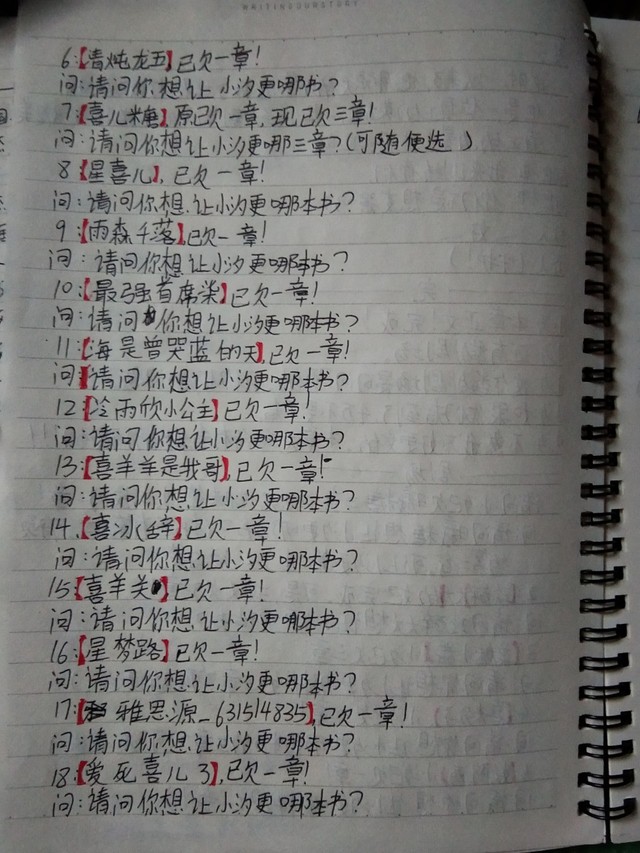 WRITINGYOURSTORY
6:【清炖龙五】已欠一章!
问:请问你想让小汐更哪书?
7:【喜儿糖】原已欠一章,现已欠三章!
问:请问你想让小汐更哪三章?(可随便选)
8【星喜儿】,已欠一章!
问:请问你想让小汐更哪本书?
9:【雨森千落】已欠一章!
问:请问你想让小汐更哪本书?
10:【最强首席柒】已欠一章!
问:请问你想让小汐更哪本书?
11:【海是曾哭蓝的天】,已欠一章!
问:请问你想让小汐更哪本书?
12:【冷雨欣小公主】已欠一章!
问:请问你想让小汐更哪本书?
13:【喜羊羊是我哥】,已欠一章!
问:请问你想让小汐更哪本书?
14.【喜冰辞】已欠一章!
问:请问你想让小汐更哪本书?
15:【喜羊关】已欠一章!
问:请问你想让小汐更哪本书?
16:【星梦路】已欠一章!
问:请问你想让小汐更哪本书?
17:【雅思源_631514835】,已欠一章!
问:请问你想让小汐更哪本书?
18:【爱死喜儿3】,已欠一章!
问:请问你想让小汐更哪本书?